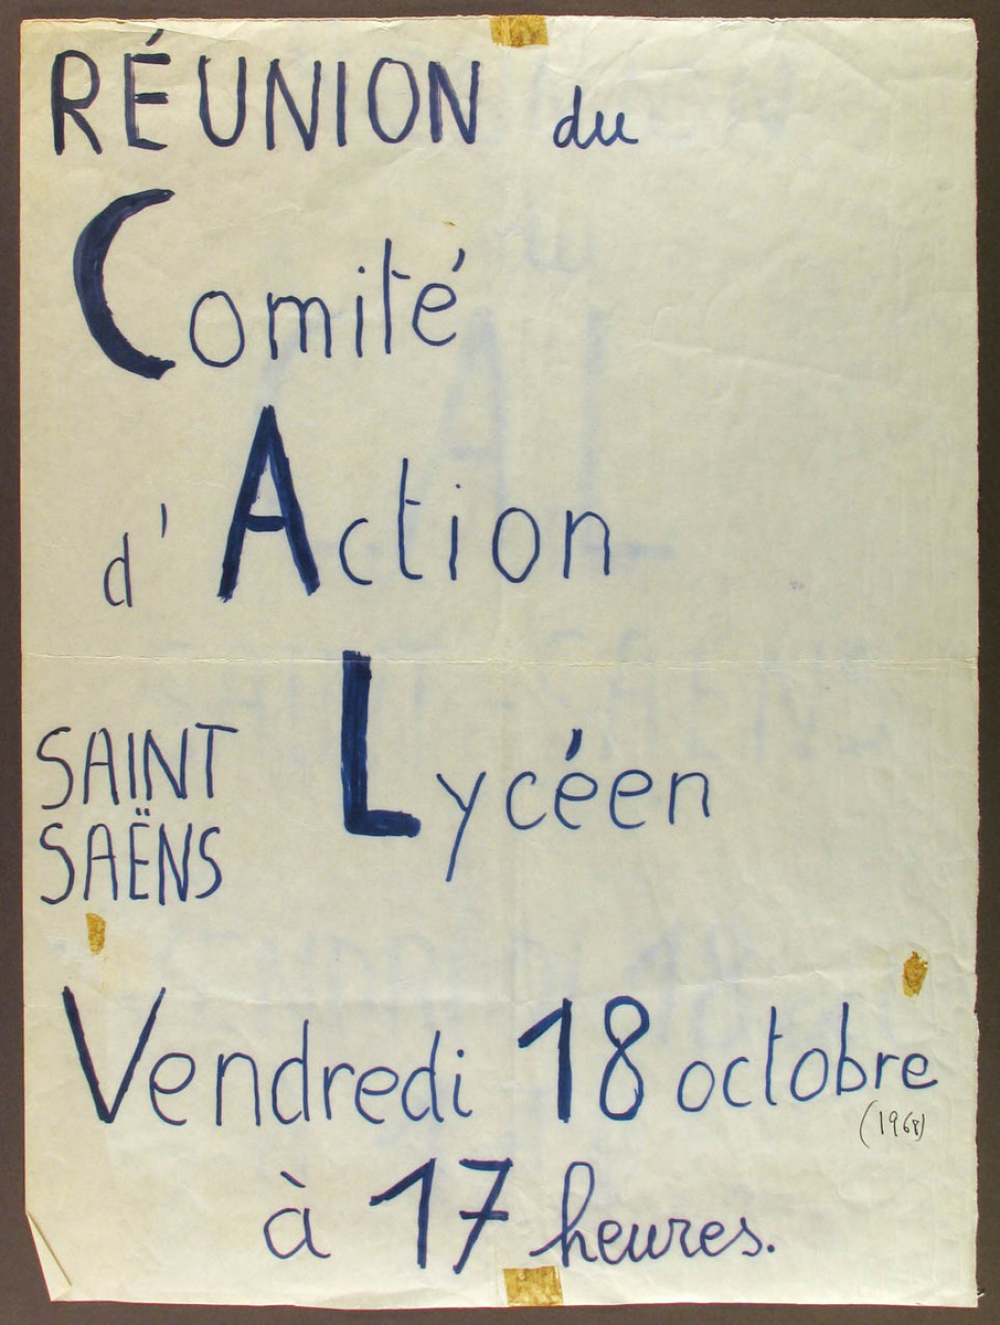 RÉUNION du
Comité
d'Action
Lycéen
SAINT
SAËNS
Vendredi 18 octobre
(1968)
à 17 heures.